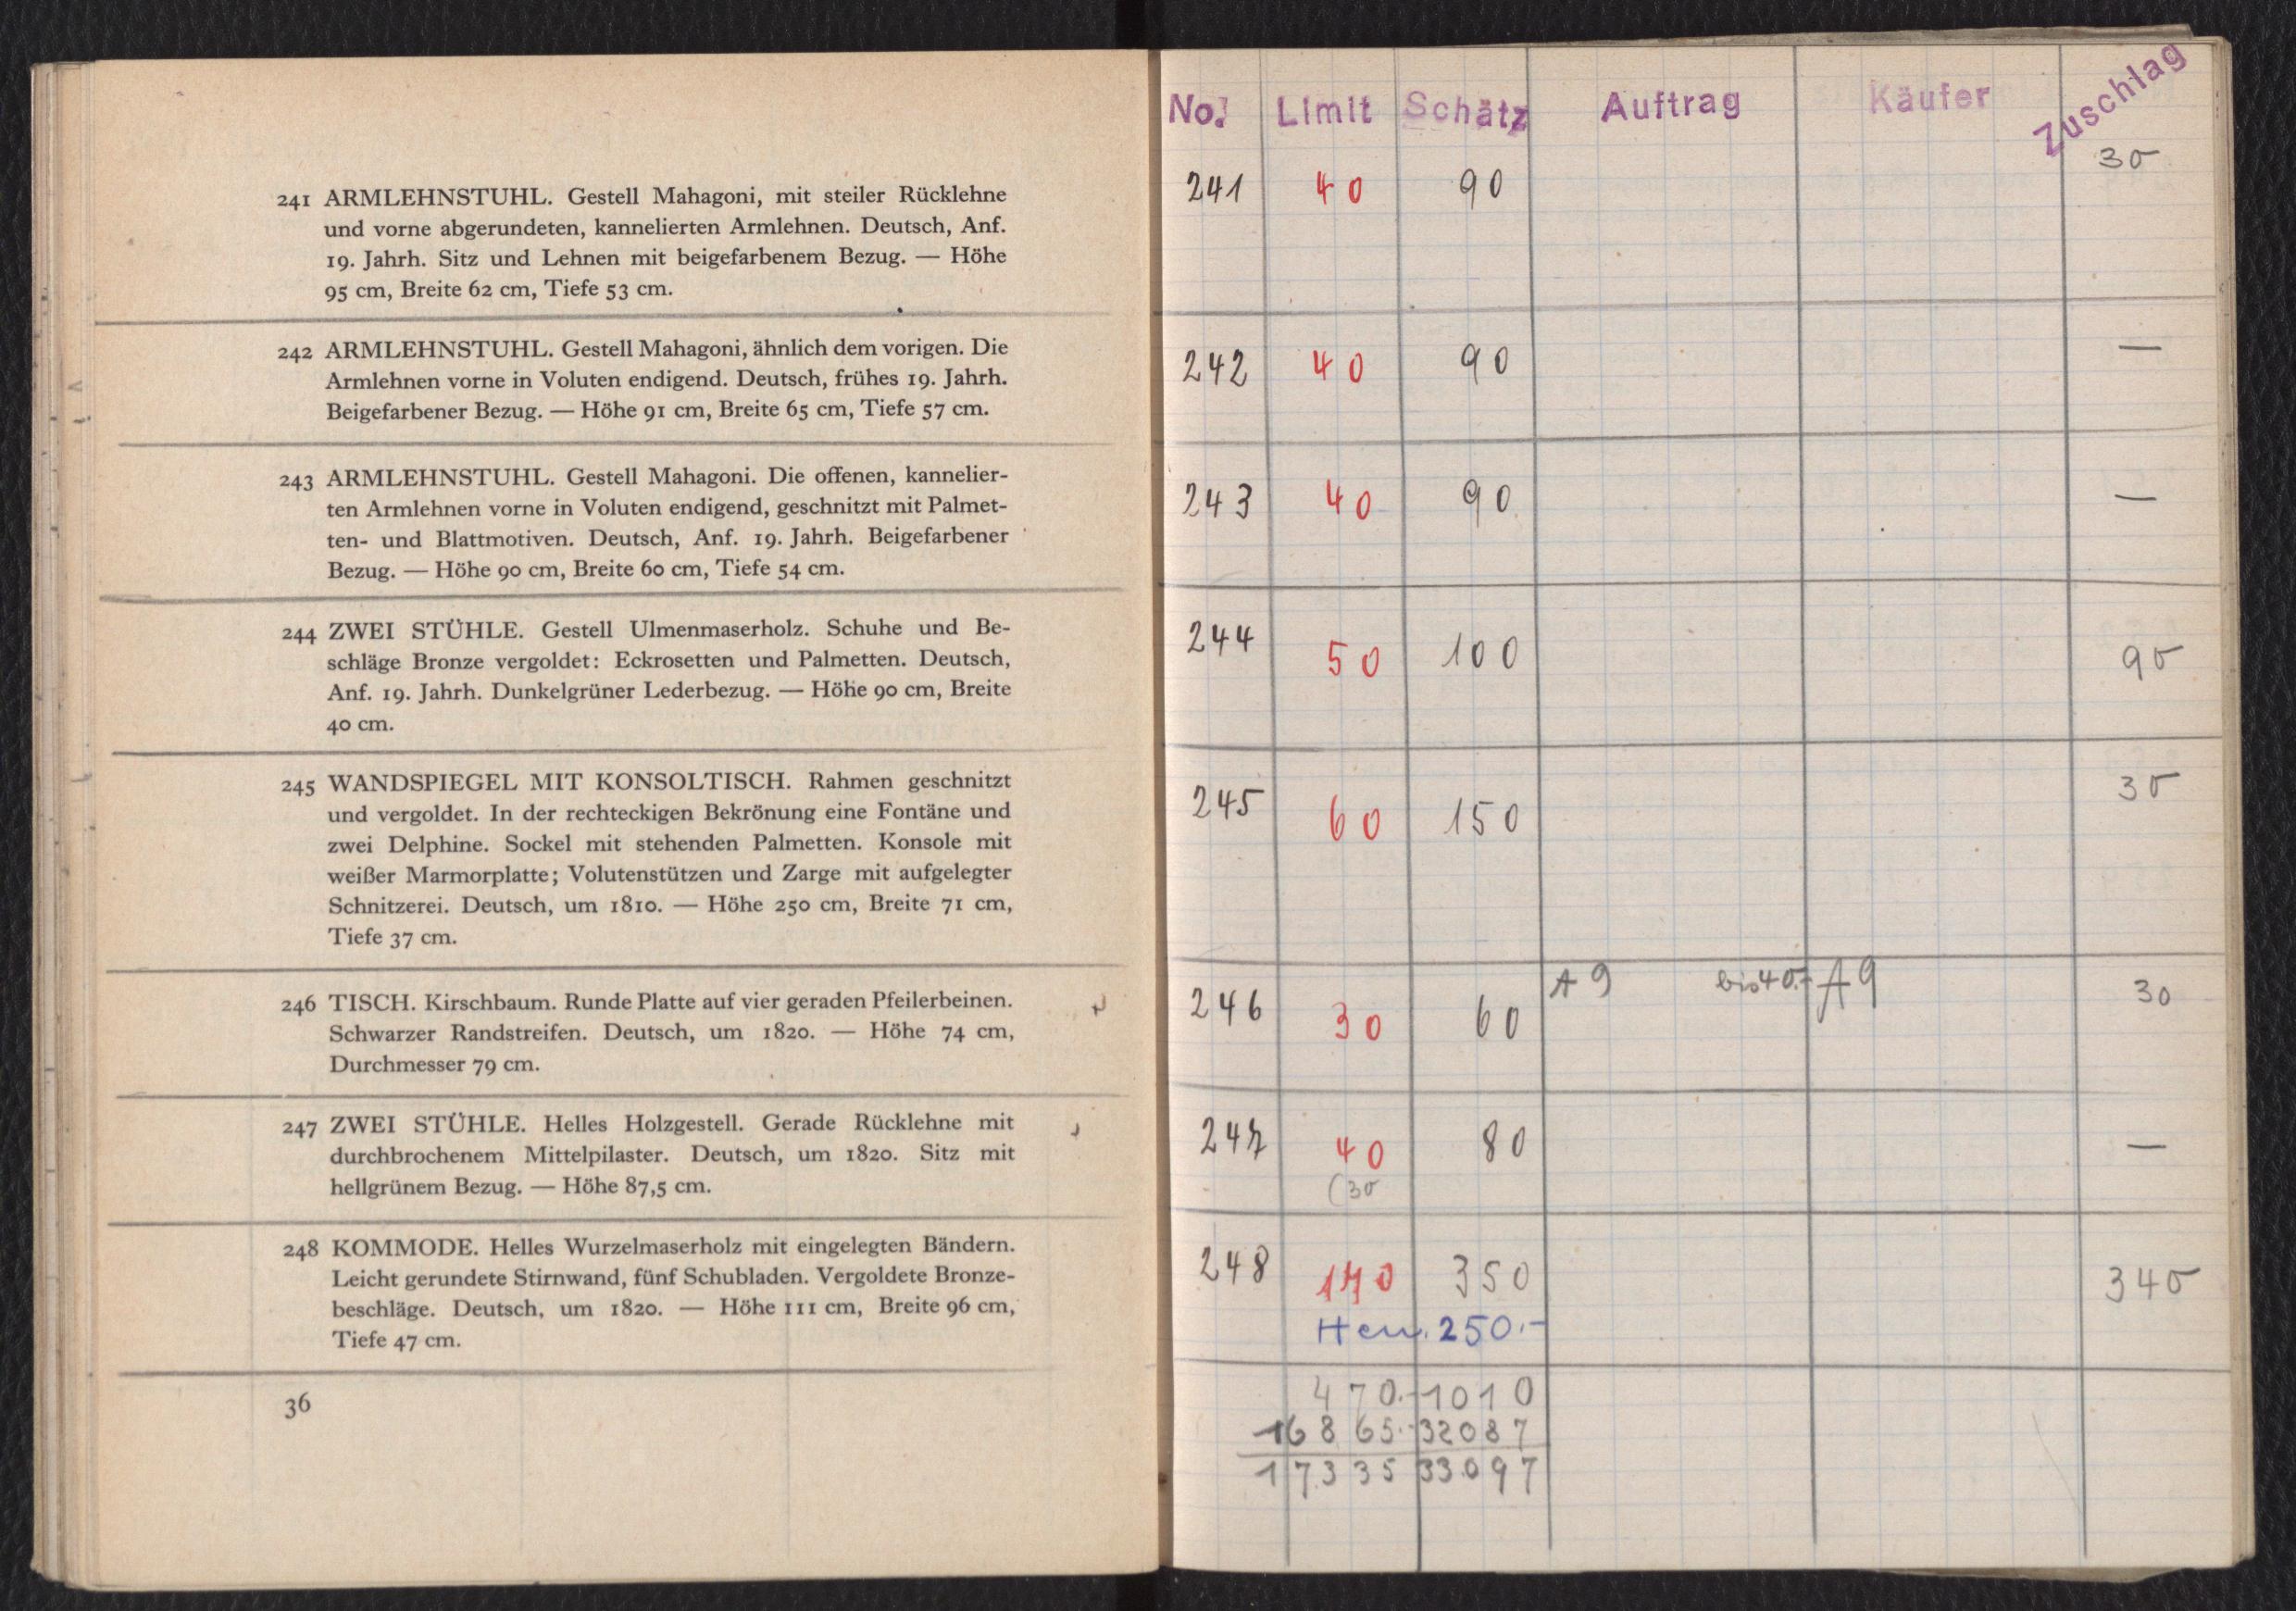 241 ARMLEHNSTUHL. Gestell Mahagoni, mit steiler Rücklehne
und vorne abgerundeten, kannelierten Armlehnen. Deutsch, Anf.
19. Jahrh. Sitz und Lehnen mit beigefarbenem Bezug. — Höhe
95 cm, Breite 62 cm, Tiefe 53 cm.
242 ARMLEHNSTUHL. Gestell Mahagoni, ähnlich dem vorigen. Die
Armlehnen vorne in Voluten endigend. Deutsch, frühes 19. Jahrh.
Beigefarbener Bezug. — Höhe 91 cm, Breite 65 cm, Tiefe 57 cm.
243 ARMLEHNSTUHL. Gestell Mahagoni. Die offenen, kannelier-
ten Armlehnen vorne in Voluten endigend, geschnitzt mit Palmet-
ten- und Blattmotiven. Deutsch, Anf. 19. Jahrh. Beigefarbener
Bezug. — Höhe 90 cm, Breite 60 cm, Tiefe 54 cm.
244 ZWEI STÜHLE. Gestell Ulmenmaserholz. Schuhe und Be-
schläge Bronze vergoldet: Eckrosetten und Palmetten. Deutsch,
Anf. 19. Jahrh. Dunkelgrüner Lederbezug. — Höhe 90 cm, Breite
40 cm.
245 WANDSPIEGEL MIT KONSOLTISCH. Rahmen geschnitzt
und vergoldet. In der rechteckigen Bekrönung eine Fontäne und
zwei Delphine. Sockel mit stehenden Palmetten. Konsole mit
weißer Marmorplatte; Volutenstützen und Zarge mit aufgelegter
Schnitzerei. Deutsch, um 1810. — Höhe 250 cm, Breite 71 cm,
Tiefe 37 cm.
246 TISCH. Kirschbaum. Runde Platte auf vier geraden Pfeilerbeinen.
Schwarzer Randstreifen. Deutsch, um 1820. — Höhe 74 cm,
Durchmesser 79 cm.
247 ZWEI STÜHLE. Helles Holzgestell. Gerade Rücklehne mit
durchbrochenem Mittelpilaster. Deutsch, um 1820. Sitz mit
hellgrünem Bezug. — Höhe 87,5 cm.
248 KOMMODE. Helles Wurzelmaserholz mit eingelegten Bändern.
Leicht gerundete Stirnwand, fünf Schubladen. Vergoldete Bronze-
beschläge. Deutsch, um 1820. — Höhe 111 cm, Breite 96 cm,
Tiefe 47 cm.
36
No. Limit Schätz Auftrag Käufer Zuschlag
241 40 90 30
242 40 90 —
243 40 90 —
244 50 100 90
245 60 150 30
246 30 60 A 9 bis 40.- A 9 30
247 40 80 —
(30
248 170 350 340
250.-
470.- 1010
16865.- 32087
17335 33097